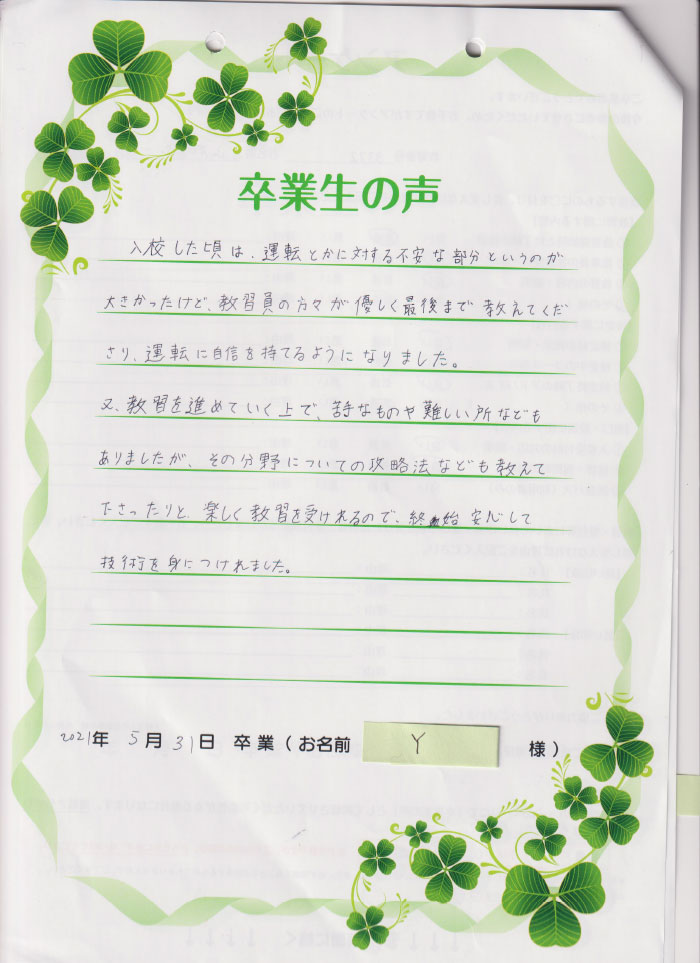 卒業生の声
入校した頃は、運転とかに対する不安な部分というのが
大きかったけど、教習員の方々が優しく最後まで教えてくだ
さり、運転に自信を持てるようになりました。
又、教習を進めていく上で、苦手なものや難しい所なども
ありましたが、その分野についての攻略法なども教えて
ださったりと、楽しく教習を受けれるので、終始安心して
技術を身につけれました。
2021年 5月 31日 卒業(お名前 Y 様)